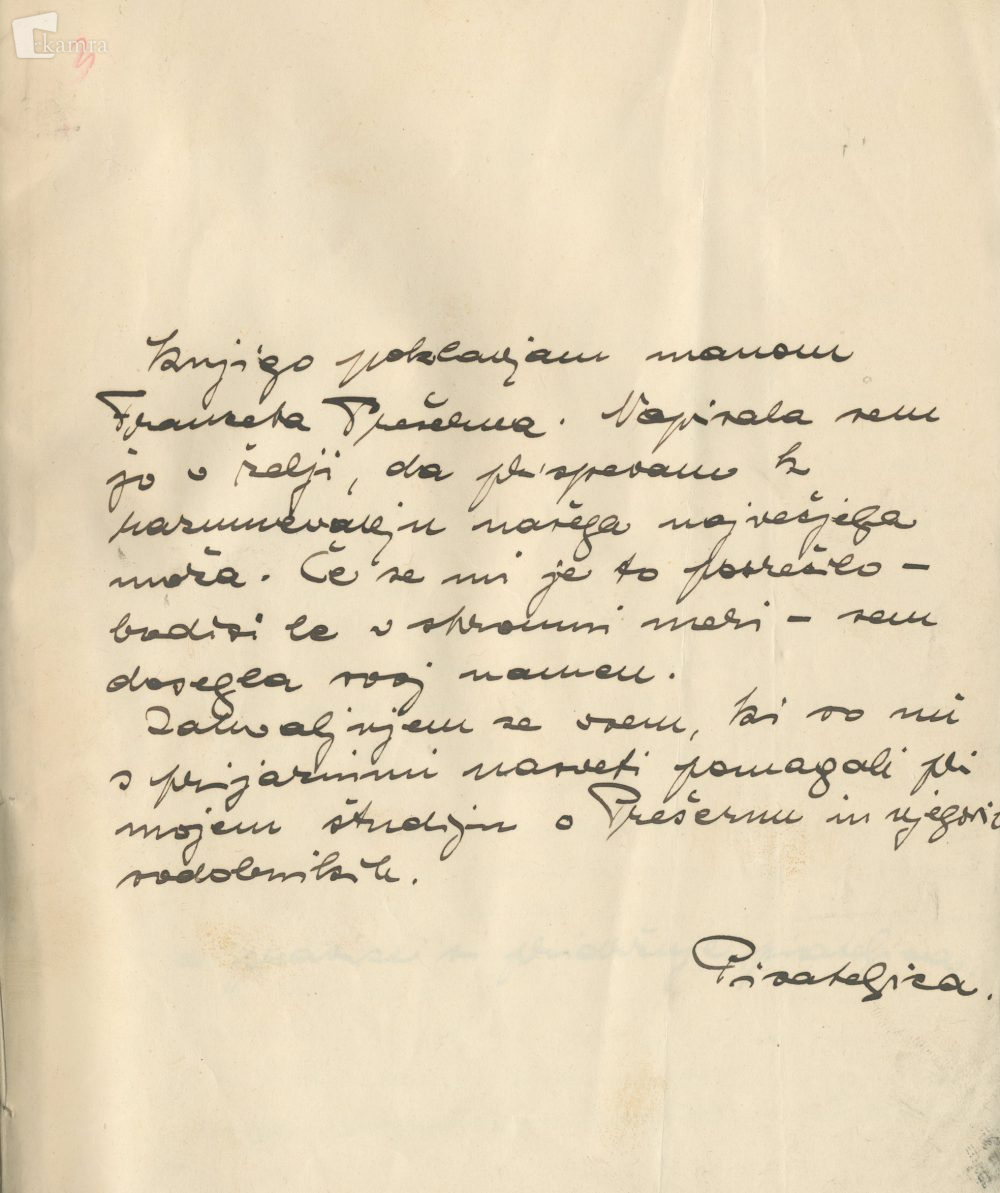 kamra
Knjigo poklanjam manom
Franceta Prešerna. Napisala sem
jo v želji, da prispevam k
razumevanju našega največjega
moža. Če se mi je to posrečilo –
bodisi le v skromni meri – sem
dosegla svoj namen.
Zahvaljujem se vsem, ki so mi
s prijaznimi nasveti pomagali pri
mojem študiju o Prešernu in njegovih
sodobnikih.
Pisateljica.